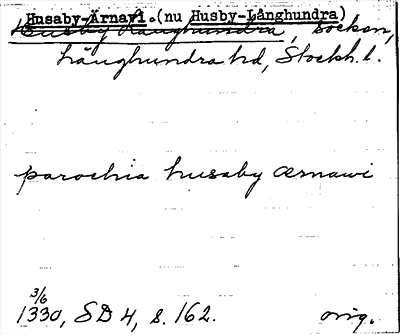 Husaby-Ärnavi.(nu Husby-Långhundra)
Husby Långhundra, socken,
Långhundra hd, Stockh. l.
parochia husaby ærnawi
3/6
1330, SD 4, s. 162. orig.